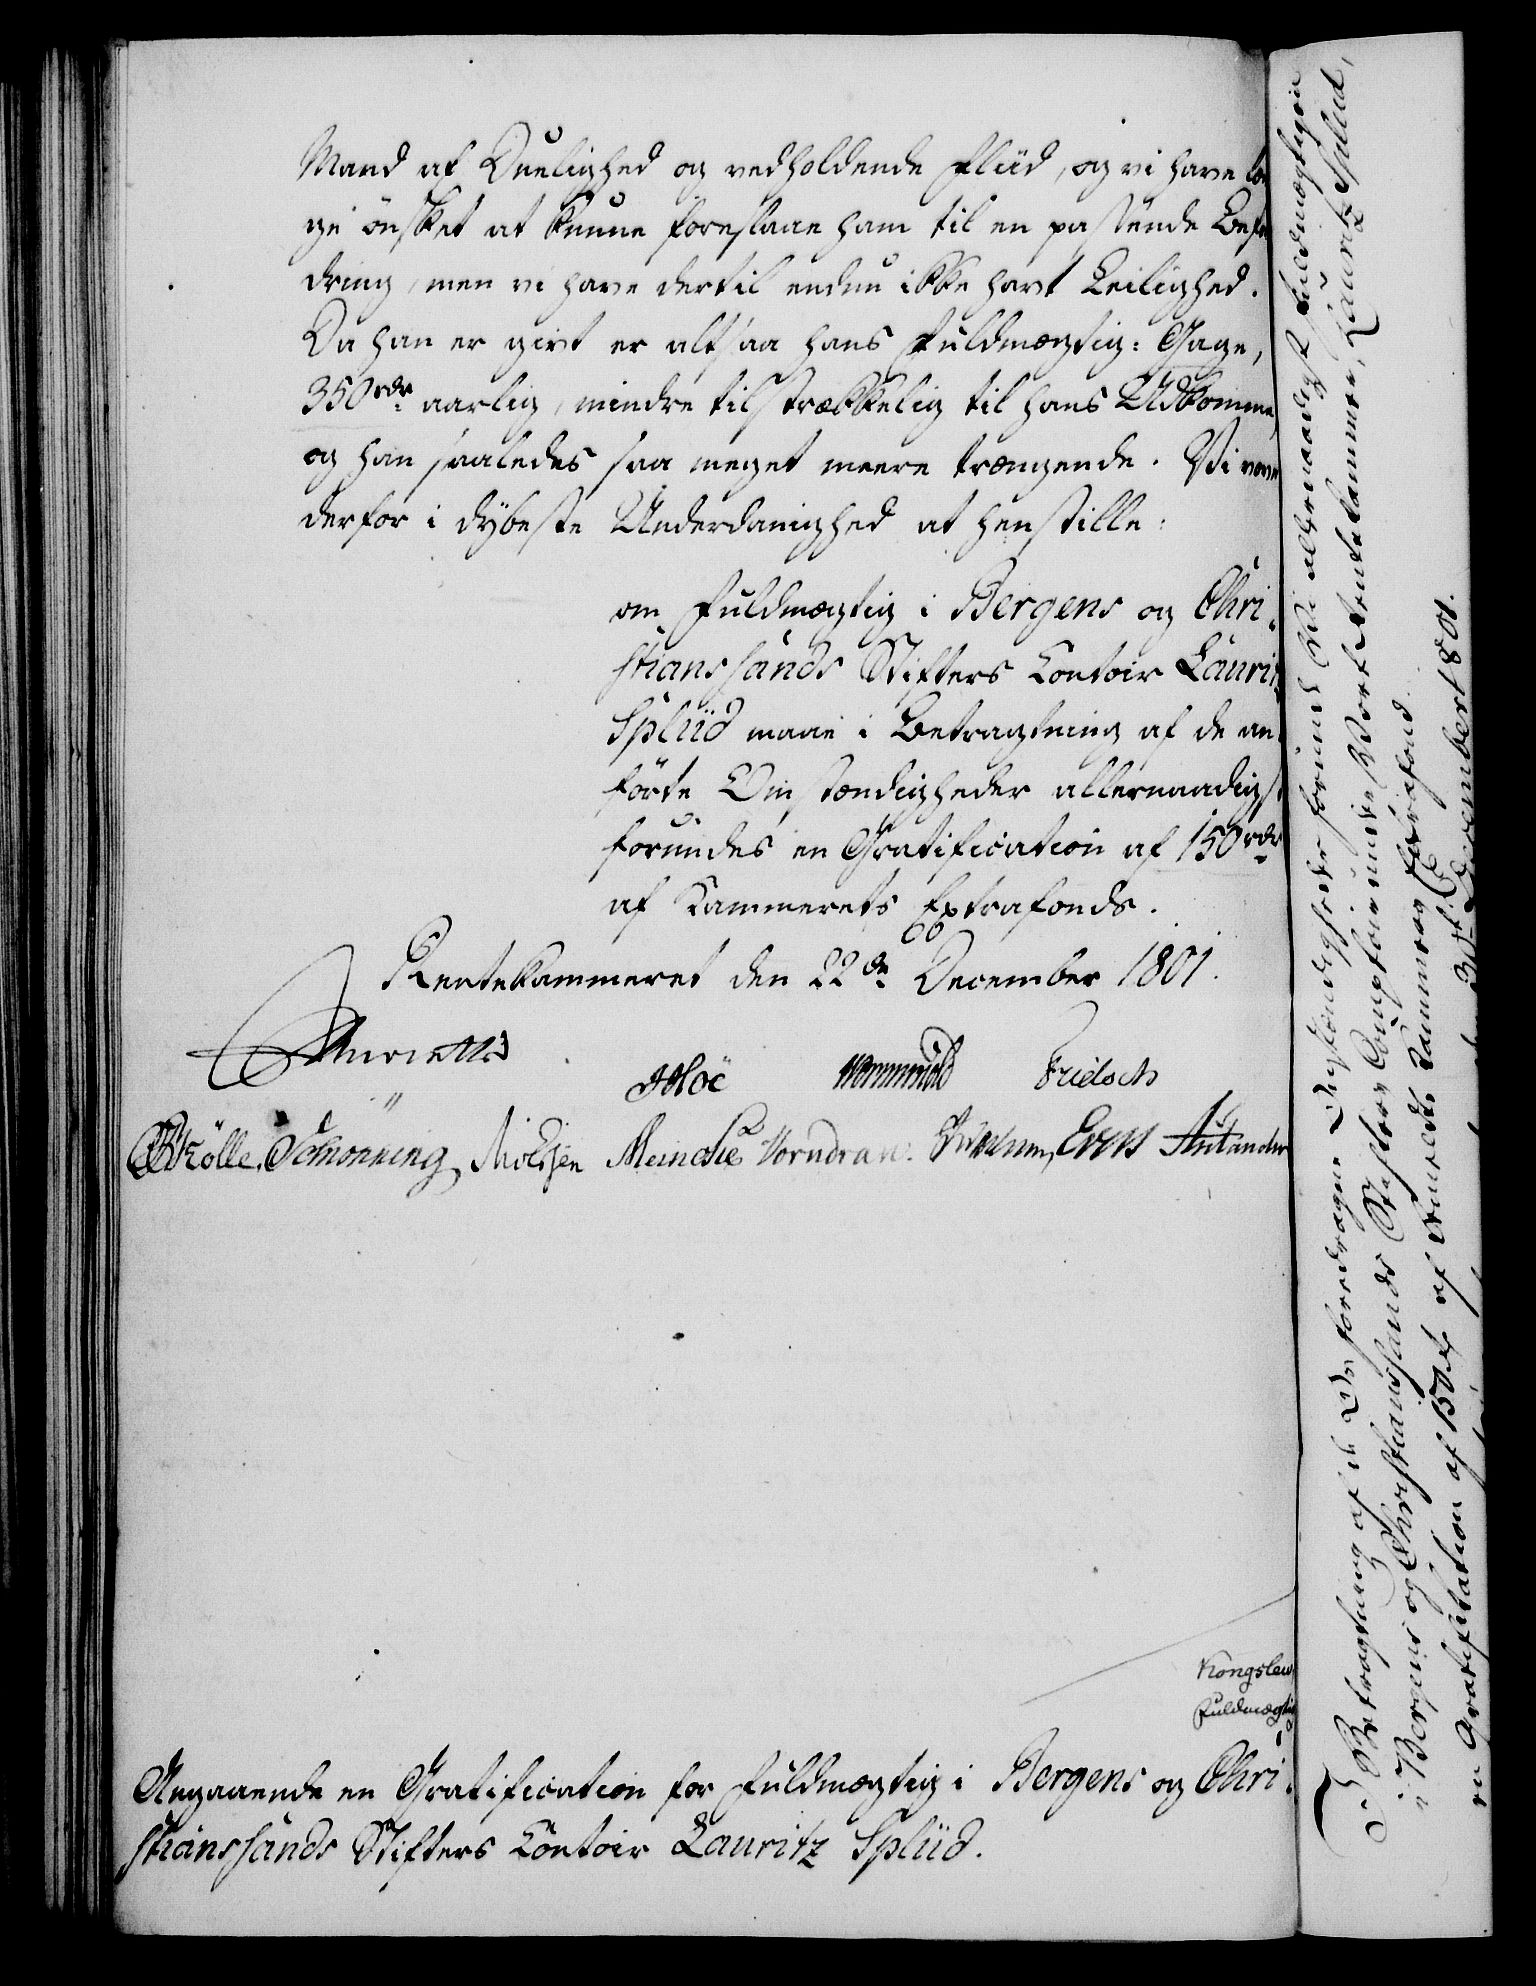 Mand af Duelighed og vedholdende Fliid, og vi have læn
ge ønsket at kunne foreslaae ham til en passende Befor
dring, men vi have dertil endnu ikke havt Leilighed.
Da han er givt er altsaa hans Fuldmægtig: Gage,
350 rdr aarlig, mindre tilstrækkelig til hans Udkomme,
og han saaledes saa meget meere trængende. Vi vove
derfor i dybeste Underdanighed at henstille:
om Fuldmægtig i Bergens og Chri-
stianssands Stifters Contoir Lauritz
Spliid maae i Betragtning af de an-
førte Omstændigheder allernaadigst
forundes en Gratification af 150 rdr
af Kammerets Extrafonds.
Rentekammeret den 22de December 1801.
Hoë Wormskiold Fridsch
Kölle. Schonning Meincke Vorndran. Evers
Kongslew
Fuldmægtig
Angaaende en Gratification for Fuldmægtig i Bergens og Chri-
stianssands Stifters Contoir Lauritz Spliid.
I Betragtning af de foredragne Omstændigheder forunde Vi allernaadigst Fuldmægtigen
i Bergens og Christianssands Stifters Comptoir under Vort Rentekammer, Lauritz Spliid,
en Gratification af 150 rd af bemeldte Kammers Extrafond.
den 30te December 1801.